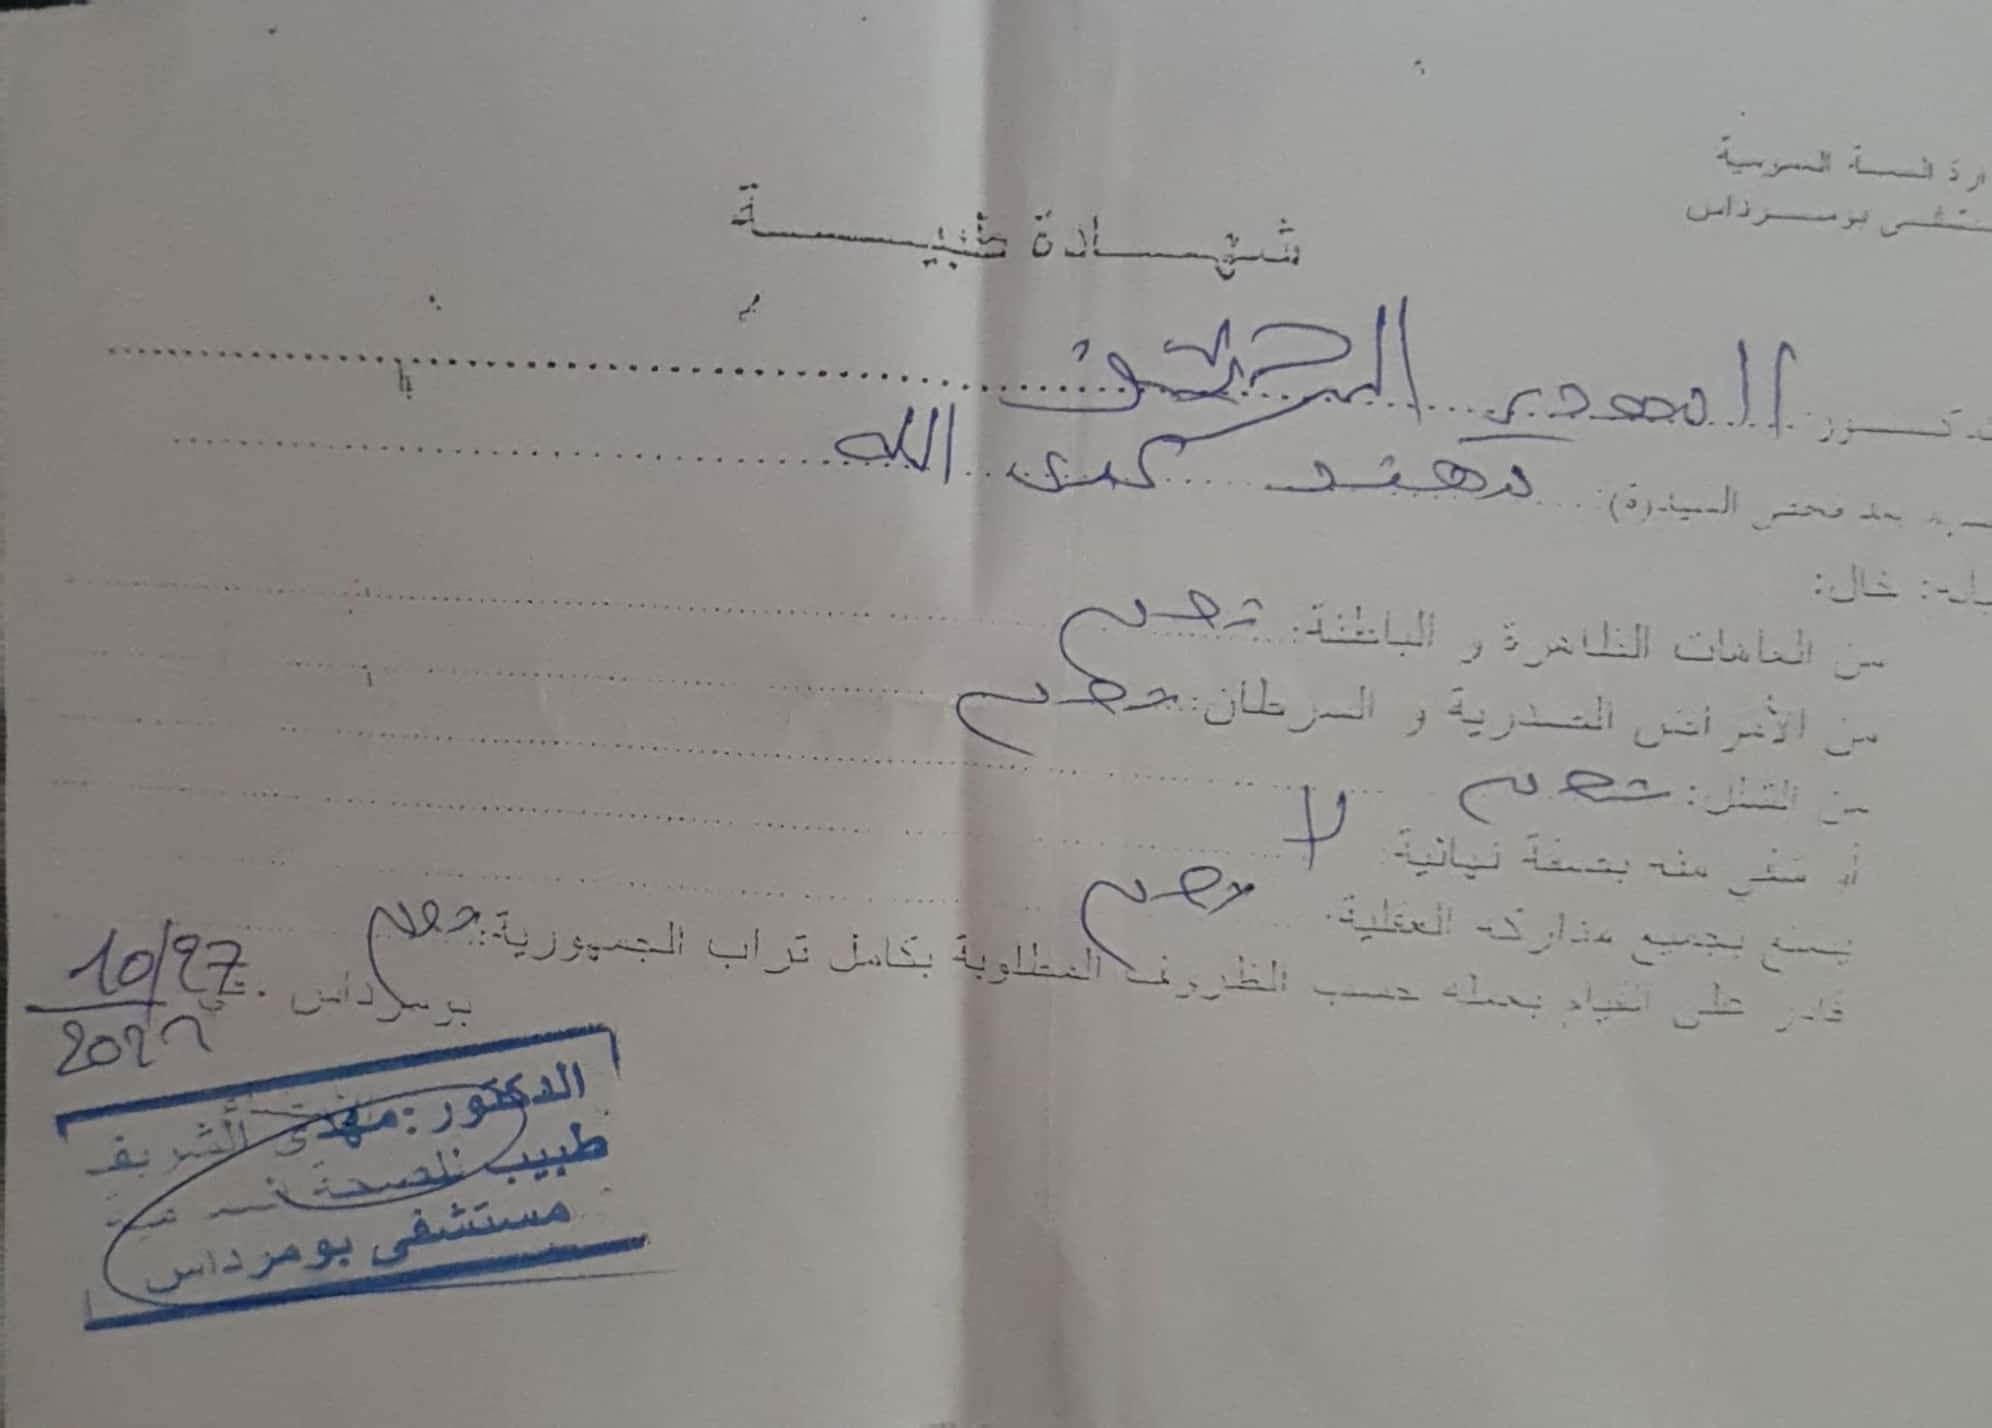 وزارة الصحة العمومية
مستشفى بومرداس
شهادة طبية
الدكتور: المهدي الشريف
بعد فحص السيد(ة):
خال:
من العاهات الظاهرة و الباطنة: نعم
من الأمراض الصدرية و السرطان: نعم
من الشلل: نعم
أو شفي منه بصفة نهائية لا
يتمتع بجميع مداركه العقلية: نعم
قادر على القيام بعمله حسب الظروف المطلوبة بكامل تراب الجمهورية: نعم
بومرداس في 10/27
الدكتور: مهدي الشريف
طبيب للصحة العمومية
مستشفى بومرداس